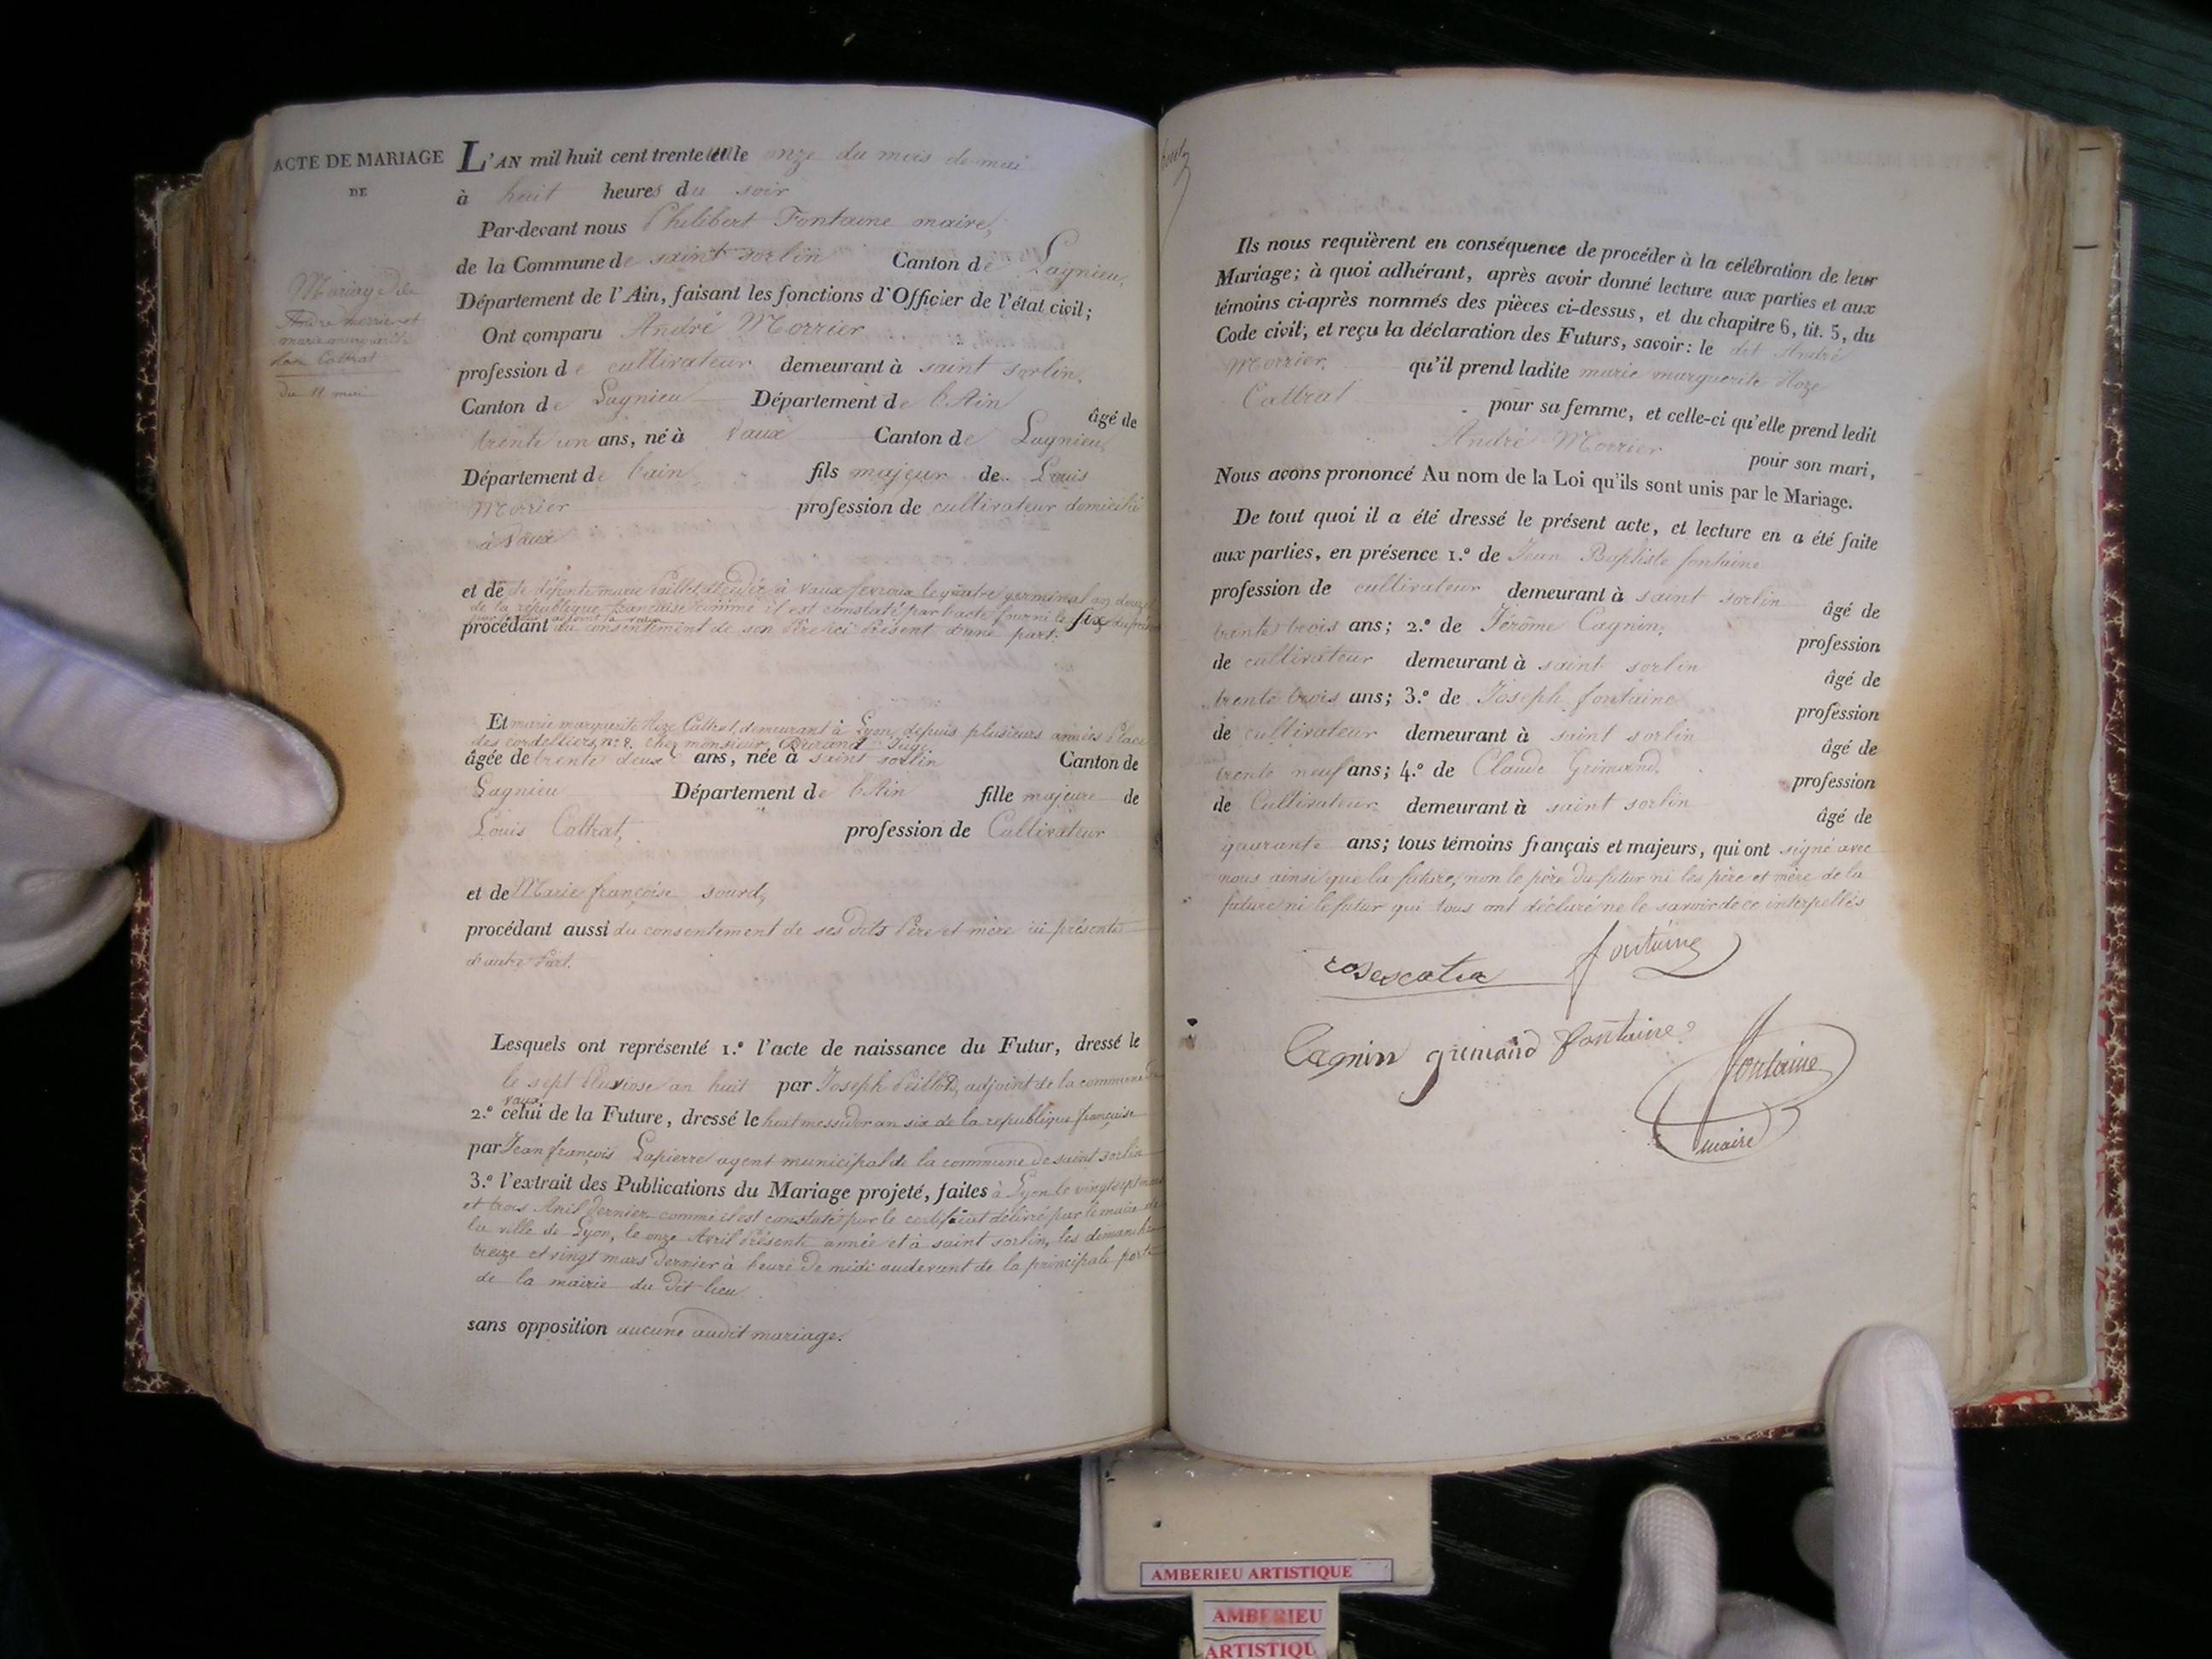 ACTE DE MARIAGE
DE
Mariage de
André Morrier et
marie marguerite
Roze Cattrat
du 11 mai
L'AN mil huit cent trente le onze du mois de mai
à huit heures du soir
Par-devant nous Philibert Fontaine maire,
de la Commune de saint sorlin Canton de Lagnieu,
Département de l'Ain, faisant les fonctions d'Officier de l'état civil;
Ont comparu André Morrier
profession de cultivateur demeurant à saint sorlin,
Canton de Lagnieu Département de l'Ain âgé de
trente un ans, né à Vaux Canton de Lagnieu,
Département de l'ain fils majeur de Louis
Morrier profession de cultivateur domicilié
à Vaux
et de de défunte marie décédée à Vaux le quatre germinal an douze
de la république française comme il est constaté par l'acte fourni le
procédant du consentement de son Père ici Présent d'une part.
Et marie marguerite Roze Cattrat, demeurant à Lyon, depuis plusieurs années Place
des cordelliers, n.º 8. chez monsieur Durand Juge.
âgée de trente deux ans, née à saint sorlin Canton de
Lagnieu Département de l'Ain fille majeure de
Louis Cattrat, profession de Cultivateur
et de Marie françoise sourd,
procédant aussi du consentement de ses dits Père et mère ici présents
d'autre Part.
Lesquels ont représenté 1.º l'acte de naissance du Futur, dressé le
le sept Pluviose an huit par Joseph adjoint de la commune de
vaux
2.º celui de la Future, dressé le huit messidor an six de la republique française
par Jean françois Lapierre agent municipal de la commune de saint sorlin
3.º l'extrait des Publications du Mariage projeté, faites à Lyon le vingt sept mars
et trois Avril dernier comme il est constaté par le certificat délivré par le maire de
la ville de Lyon, le onze Avril Présente année et à saint sorlin, les dimanche
treize et vingt mars dernier à heure de midi audevant de la principale porte
de la mairie du dit lieu
sans opposition aucune audit mariage.
Ils nous requièrent en conséquence de procéder à la célébration de leur
Mariage; à quoi adhérant, après avoir donné lecture aux parties et aux
témoins ci-après nommés des pièces ci-dessus, et du chapitre 6, tit. 5, du
Code civil, et reçu la déclaration des Futurs, savoir: le dit André
Morrier, qu'il prend ladite marie marguerite Roze
Cattrat pour sa femme, et celle-ci qu'elle prend ledit
André Morrier pour son mari,
Nous avons prononcé Au nom de la Loi qu'ils sont unis par le Mariage.
De tout quoi il a été dressé le présent acte, et lecture en a été faite
aux parties, en présence 1.º de Jean Baptiste fontaine
profession de cultivateur demeurant à saint sorlin âgé de
trente trois ans; 2.º de Jérôme Cagnin, profession
de cultivateur demeurant à saint sorlin âgé de
trente trois ans; 3.º de Joseph fontaine profession
de cultivateur demeurant à saint sorlin âgé de
trente neuf ans; 4.º de Claude Grimand, profession
de Cultivateur demeurant à saint sorlin âgé de
quarante ans; tous témoins français et majeurs, qui ont signé avec
nous ainsi que la future, non le père du futur ni les père et mère de la
future ni le futur qui tous ont déclaré ne le savoir de ce interpellés
fontaine
Cagnin grimand fontaine
fontaine
maire
AMBERIEU ARTISTIQUE
AMBERIEU
ARTISTIQU